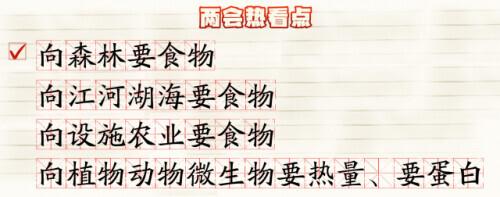 两会热看点
向森林要食物
向江河湖海要食物
向设施农业要食物
向植物动物微生物要热量、要蛋白